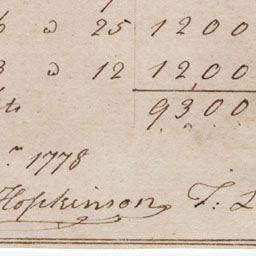 6 a 25 1200
3 a 12 1200
9300
1778
Hopkinson T: L